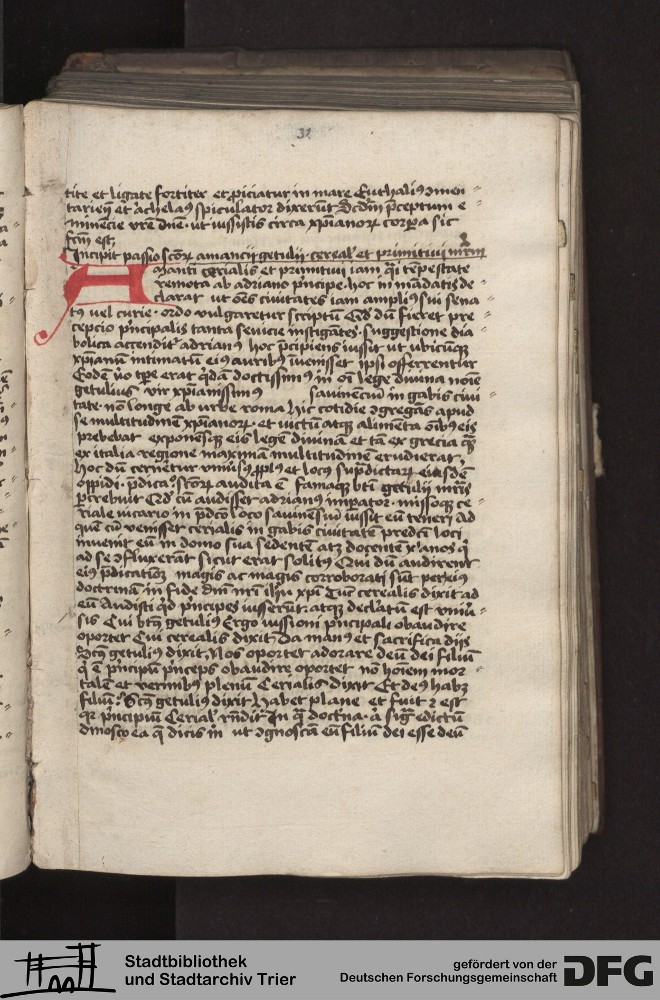 32
tite et ligate fortiter et ꝓiciatur in mare Euthaliꝰ ↄmen
tarień et achelaꝰ spiculator dixerūt Scdm̄ p̄ceptum e
minēcie vre dn̄e ut iussistis circa xp̄ianoꝝ corpora sic
fcm̄ est
Incipit passio scōꝝ amancij getulij cereal' et primitiui mr̄m
Amanti cerialis et primitiui iam tēpestate
remota ab adriano p̄ncipe hoc in mādatis de
clarat ut oēs ciuitates iam ampliꝰ sui sena
tꝰ uel curie ordo vulgaretur scriptū Qd dū fieret pre
cepcio p̄ncipalis tanta seuicie instigātes suggestione dia
bolica accendit adrianꝰ hoc p̄cipiens iussit ut ubicūqꝫ
xp̄ianū intimatū eiꝰ auribꝰ īuenisset ipsi offerrentur
Eodē v̊o tꝑe erat qdā doctissimꝰ in oī lege diuina noīe
getulius vir xp̄ianissimꝰ sauinensiū in gabis ciui
tate nō longe ab urbe roma hic cotidie ↄgregās apud
se multitudinē xp̄ianoꝝ et uictū atqꝫ alimēta oībꝰ eis
prebebat exponēsqꝫ eis legē diuinā et tā ex grecia qꝫ
ex italia regione maximā multitudinē erudierat
hoc dū cernētur vniuīsꝰ ppl̄s et locꝰ sup̄dictaꝝ eiusdē
oppidi p̄dicac̄ scōꝝ audita ē famaqꝫ bt̄i getulij mr̄is
ꝑcrebuit Qd cū audisset adrianꝰ impator missoqꝫ ce
riale uicario in p̄dc̄o loco sauinēsiū iussit eū teneri Ad
quē cū venisset cerialis in gabis ciuitatē predc̄i loci
inuenit eū in domo sua sedentē atqꝫ docentē xp̄ianos q̄
ad se ↄfluxerāt sicut erat solitꝰ Qui dū audirent
eiꝰ p̄dicatiōēꝫ magis ac magis corroborati sūt
doctrinā in fide dn̄i nr̄i ih̄u xp̄i Tūc cerealis dixit ad
eū Audisti qd p̄ncipes iusserūt atqꝫ declatū est vniū
sis Cui bt̄s getuliꝰ Ergo iussioni p̄ncipali obaudire
oportet Cui cerealis dixit Da manꝰ et sacrifica dijs
Sc̄s getuliꝰ dixit Nos oportet adorare deū dei filiū
q̄ ē p̄ncipiū p̄nceps obaudire oportet nō hoīem mor
talē et vermibꝰ plenū Cerialis dixit Et deꝰ habꝫ
filiū Sc̄s getuliꝰ dixit habet plane et fuit ⁊ est
qꝛ p̄ncipiū Cerial' rn̄dit In q̄ doctrīa a sigͣ edictū
dinosco ea q̄ dicis m̄ ut ↄgnoscā eū filiū dei esse deū
Stadtbibliothek
und Stadtarchiv Trier
gefördert von der
Deutschen Forschungsgemeinschaft
DFG